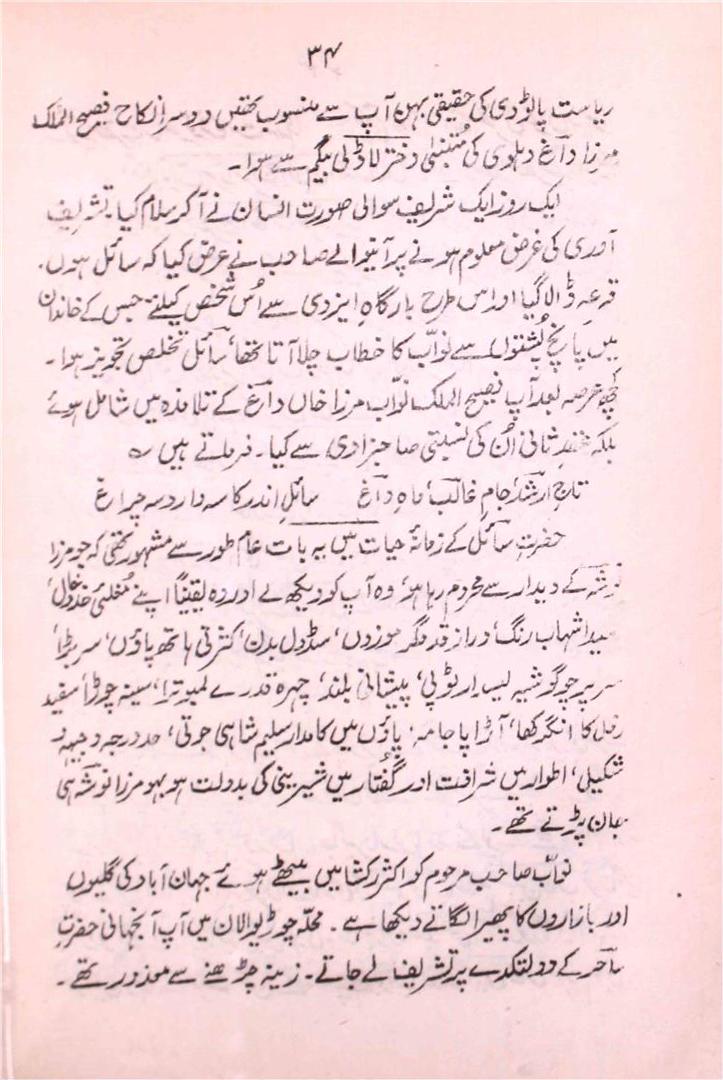 ۳۴
ریاست پاٹودی کی حقیقی بہن آپ سے منسوب تھیں دوسرا نکاح فصیح الملک
مرزا داغ دہلوی کی متبنیٰ دختر لاڈلی بیگم سے ہوا۔
ایک روز ایک شریف سوالی صورت انسان نے آکر سلام کیا۔ تشریف
آوری کی غرض معلوم ہونے پر آنیوالے صاحب نے عرض کیا کہ سائل ہوں۔
قرعہ ڈالا گیا اور اس طرح بارگاہِ ایزدی سے اُس شخص کیلئے جس کے خاندان
میں پانچ پُشتوں سے نواب کا خطاب چلا آتا تھا، سائل تخلص تجویز ہوا۔
کچھ عرصہ بعد آپ فصیح الملک نواب مرزا خاں داغ کے تلامذہ میں شامل ہوئے
بلکہ عقدِ ثانی اُن کی نسبتی صاحبزادی سے کیا۔ فرماتے ہیں ؎
تاجِ ارشد، جامِ غالب، ماہِ داغ سائل اندر کاسہ دارد سہ چراغ
حضرت سائل کے زمانۂ حیات میں یہ بات عام طور سے مشہور تھی کہ جو مرزا
نوشہ کے دیدار سے محروم رہا ہو، وہ آپ کو دیکھ لے اور وہ یقیناً اپنے مُغلئی خدوخال،
میدا شہاب رنگ، دراز قد مگر موزوں، سڈول بدن، کثرتی ہاتھ پاؤں، سر بڑا،
سر پر چوگوشیہ لیس دار ٹوپی، پیشانی بلند، چہرہ قدرے لمبوترا، سینہ چوڑا، سفید
ململ کا انگرکھا، آڑا پاجامہ، پاؤں میں کامدار سلیم شاہی جوتی، حد درجہ وجیہہ و
شکیل، اطوار میں شرافت اور گفتار میں شیرینی کی بدولت ہو بہو مرزا نوشہ ہی
جان پڑتے تھے۔
نواب صاحب مرحوم کو اکثر رکشا میں بیٹھے ہوئے جہان آباد کی گلیوں
اور بازاروں کا پھیرا لگاتے دیکھا ہے۔ محلہ چوڑیوالان میں آپ آنجہانی حضرتِ
ساحر کے دولتکدے پر تشریف لے جاتے۔ زینہ چڑھنے سے معذور تھے۔